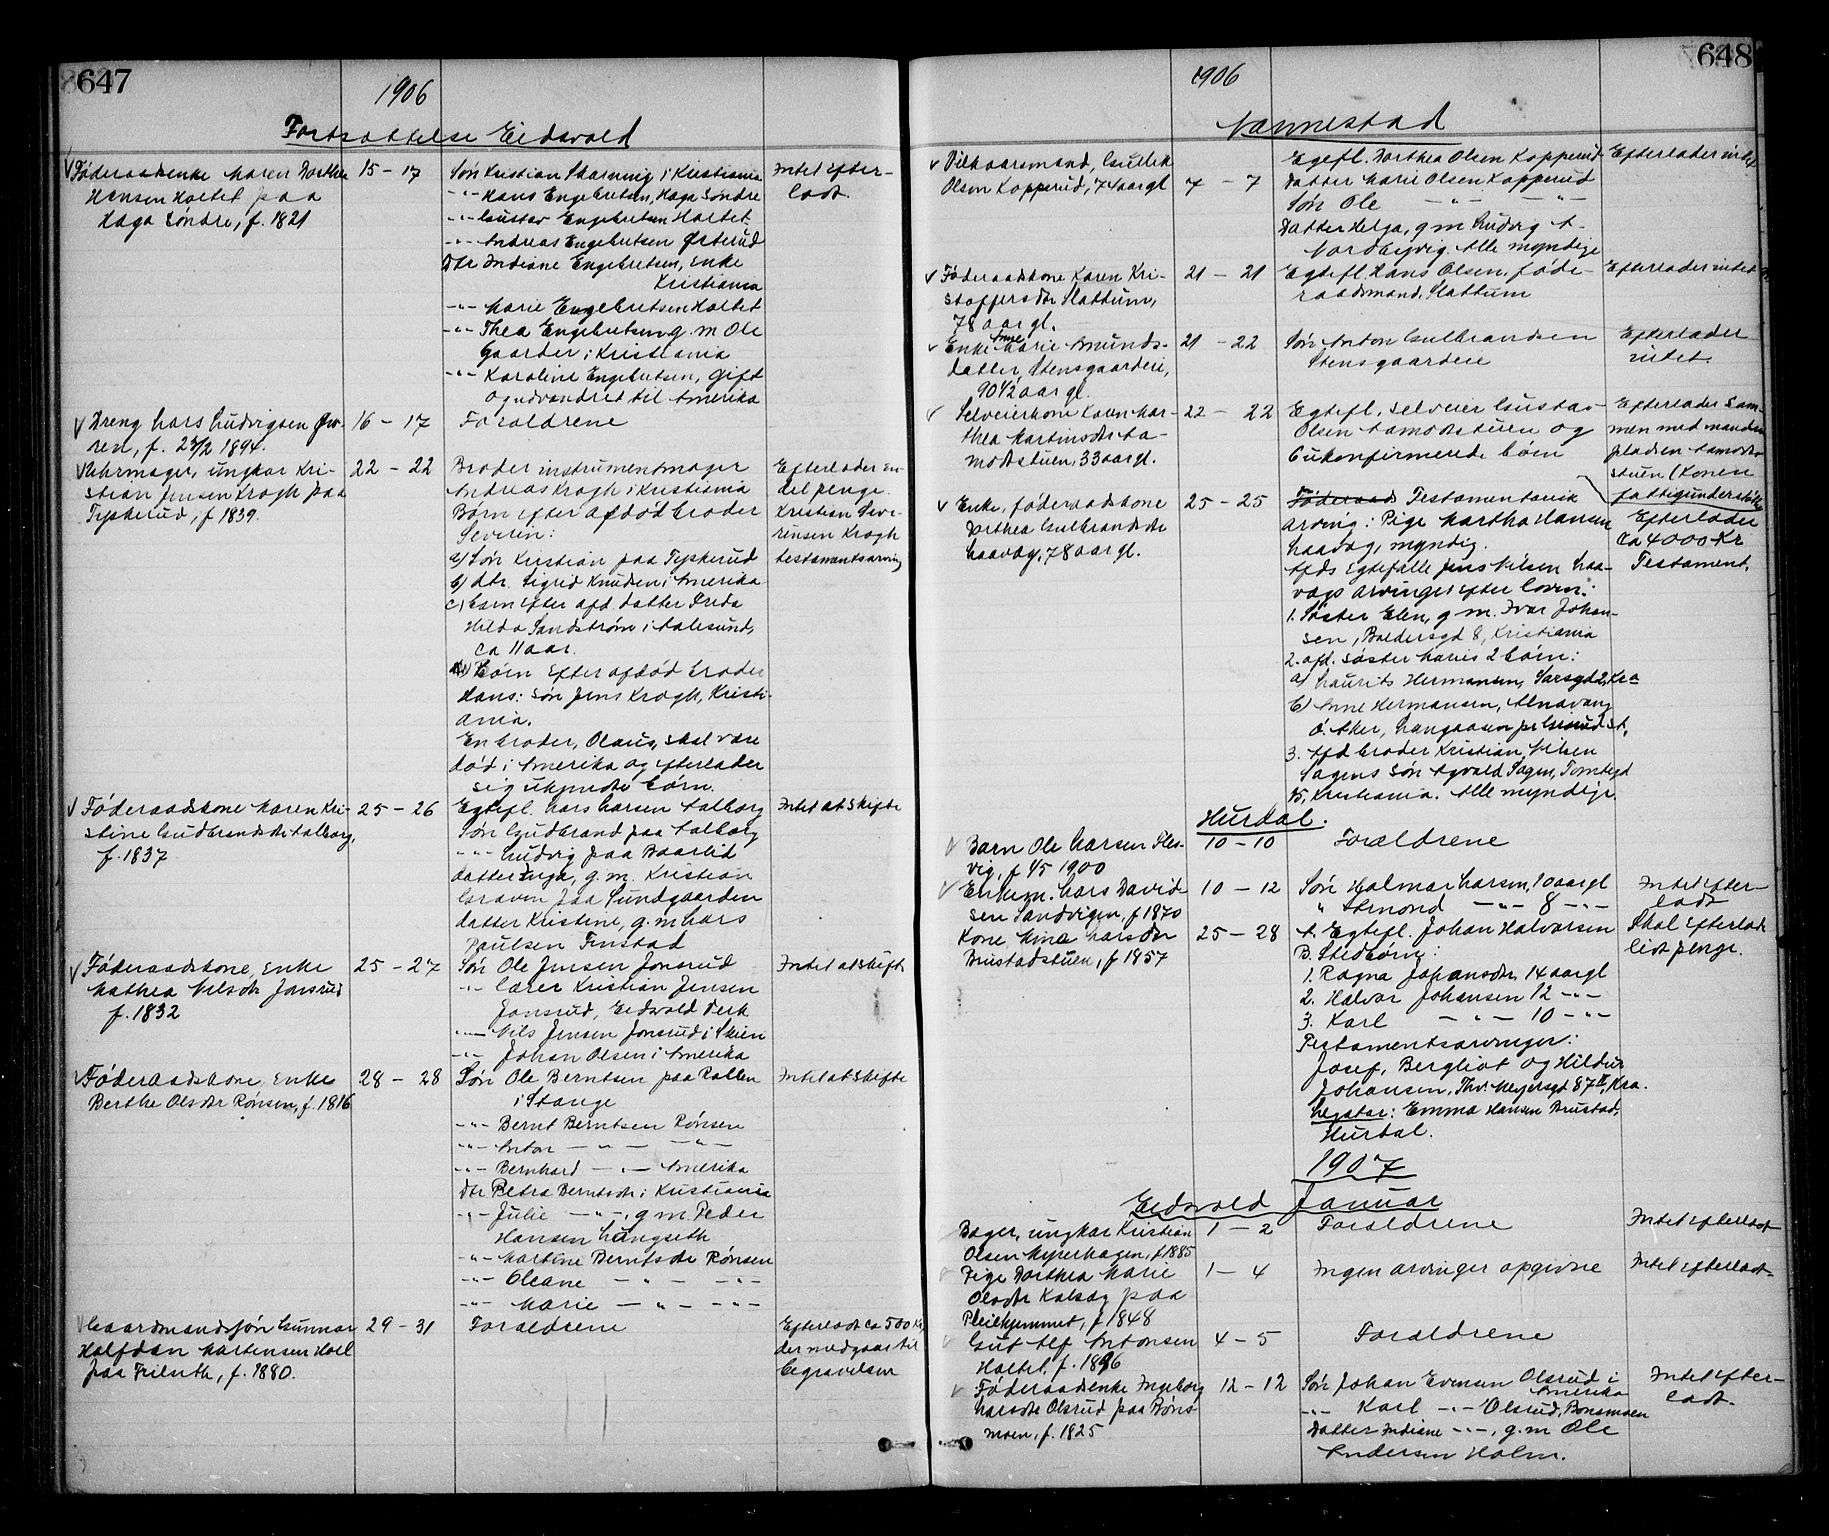 647
1906
Fortsættelse Eidsvold
Føderaadsenke Maren Dorthea
Hansen Holtet paa
Haga Søndre, f. 1821
15 – 17
Søn Kristian Skarning i Kristiania
-"- Hans Engebretsen, Haga Søndre
-"- Gustav Engebretsen Holtet
-"- Andreas Engebretsen Østerud
Dtr Indiane Engebretsen, Enke
Kristiania
-"- Marie Engebretsen Holtet
-"- Thea Engebretsen g. m Ole
Gaarder i Kristiania
-"- Karoline Engebretsen, gift
og udvandret til Amerika
Intet efter-
ladt.
Dreng Lars Ludvigsen
ren, f. 1894.
16 – 17
Forældrene
Uhrmager, ungkar Kri-
stian Jensen Krogh paa
Tyskerud, f 1839.
22 – 22
Broder instrumentmager
Andreas Krogh i Kristiania
Børn efter afdød broder
Severin:
a) Søn Kristian paa Tyskerud
b) dtr. Sigrid Knudsen i Amerika
c) barn efter afd. datter Frida
Hilda Sandstrøm i Aalesund,
ca 11 aar.
Børn efter afdød broder
Hans: søn Jens Krogh, Kristi-
ania.
En broder, Olaus, skal være
død i Amerika og efterlader
sig ukjendte børn.
Efterlader en
del penge.
Kristian Seve-
rensen Krogh
testamentsarving
Føderaadskone Maren Kri-
stine Gudbrandsdtr Aalborg,
f. 1837
25 – 26
Egtefl. Lars Larsen Aalborg
Søn Gudbrand paa Aalborg
-"- Ludvig paa Baarlid
datter Inga, g. m. Kristian
Graven paa Sundgaarden
datter Kristine, g. m Lars
Paulsen Finstad
Intet at skifte
Føderaadskone, enke
Mathea Nilsdtr Jønsrud
f. 1832
25 – 27
Søn Ole Jensen Jonsrud
-"- Lærer Kristian Jensen
Jonsrud, Eidsvold Verk
-"- Nils Jensen Jonsrud i Skien
-"- Johan Olsen i Amerika
Intet at skifte
Føderaadskone, enke
Berthe Olsdtr Rønsen, f. 1816
28 – 28
Søn Ole Berntsen paa Rollen
i Stange
-"- Bernt Berntsen Rønsen
-"- Anton -"- -"-
-"- Bernhard -"- Amerika
Dtr Petra Berntsdtr i Kristiania
-"- Julie -"-, g m Peder
Hansen Langseth
-"- Martine Berntsdtr Rønsen
-"- Oleane -"- -"-
-"- Marie -"- -"-
Intet at skifte
Gaardmandssøn Gunnar
Halfdan Martinsen Hoel
paa Frilseth, f. 1880.
29 – 31
Forældrene
Efterladt ca 500 kr,
der medgaar til
begravelsen
648
1906
Nannestad
Vilkaarsmand, Gullik
Olsen Kopperud, 74 aar gl
7 – 7
Egtefl. Dorthea Olsen Kopperud
Datter Marie Olsen Kopperud
Søn Ole -"- -"-
Datter Helga, g m Ludvig A.
Nordbyvig. Alle myndige
Efterlader intet
Føderaadskone Karen Kri-
stoffersdtr Slattum,
78 aar gl.
21 – 21
Egtefl. Hans Olsen, føde-
raadsmand, Slattum
Efterlader intet
Enke Anne Marie Amunds-
datter, Stensgaardeie,
90 1/2 aar gl.
21 – 22
Søn Anton Gulbrandsen
Stensgaardeie
Efterlader
intet.
Selveierkone Karen Mar-
thea Martinsdtr Aa-
modtstuen, 33 aar gl.
22 – 22
Egtefl. selveier Gustav
Olsen Aamodtstuen og
6 ukonfirmerede børn
Efterlader sam-
men med manden
pladsen Aamodt-
stuen (Konen
fattigunderstøttet
Enke, føderaadskone
Dorthea Gulbrandsdtr
Haavåg, 78 aar gl.
25 – 25
Føderaad Testamentarisk
arving: Pige Martha Hansen
Haavåg, myndig.
Afds Egtefælle Jens Nilsen Haa-
vågs arvinger efter loven:
1. Søster Elen, g m. Ivar Johan-
sen, Baldersgd 8, Kristiania
2. afd. søster Maris 2 børn:
a) Laurits Hermansen, Sarsgd 2, Kra
b) Anne Hermansen, Alnavang
Ø. Aker, Langaasen pr Grorud st,
3. Afd broder Kristian Nilsen
Sagens søn Agvald Sagen, Tomtegd
15, Kristiania. Alle myndige.
Efterlader
ca 4000 Kr
Testament.
Hurdal.
Barn Ole Larsen Ples-
vig, f 1/5 1900
10 – 10
Forældrene
Enkem. Lars David-
sen Sandvigen, f 1870
10 – 12
Søn Halmar Larsen, 10 aar gl
" Armond -"- 8 -"-
Intet efter-
ladt
Kone Mina Larsdtr
Brustadstuen, f 1857
25 – 28
A. Egtefl. Johan Halvorsen
B. Stedbørn:
1. Ragna Johansdtr, 14 aar gl
2. Halvor Johansen 12 -"-
3. Karl -"- 10 -"-
Testamentsarvinger:
Josef, Bergliot og Hildur
Johansen, Thv. Meyersgd 87 II, Kra.
Legatar: Emma Hansen Brustad,
Hurdal.
Skal efterlade
lidt penge.
1907
Eidsvold Januar
Bager, ungkar Kristian
Olsen Myrerhagen, f 1885
1 – 2
Forældrene
Intet efterladt
Pige Dorthea Marie
Olsdtr Kolsag paa
Pleiehjemmet, f 1848
1 – 4
Ingen arvinger opgivne
Intet efterladt
Gut Alf Antonsen
Holtet, f. 1896
4 – 5
Forældrene
Føderaadsenke Ingeborg
Larsdtr Olsrud paa Bøns-
moen, f. 1825
12 – 12
Søn Johan Evensen Olsrud i
Amerika
-"- Karl -"- Olsrud, Bønsmoen
Datter Indiane -"-, g. m Ole
Andersen Holm.
Intet efter-
ladt.